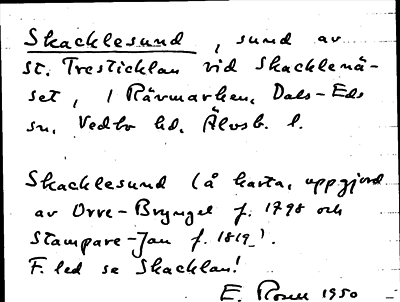 Skacklesund, sund av
St. Tresticklan vid Skacklenä-
set, i Rävmarken, Dals-Eds
sn, Vedbo hd, Älvsb. l.
Skacklesund (å karta, uppgjord
av Orre-Bryngel f. 1798 och
Stampare-Jan f. 1819).
F. led se Skacklan!
E. 1950